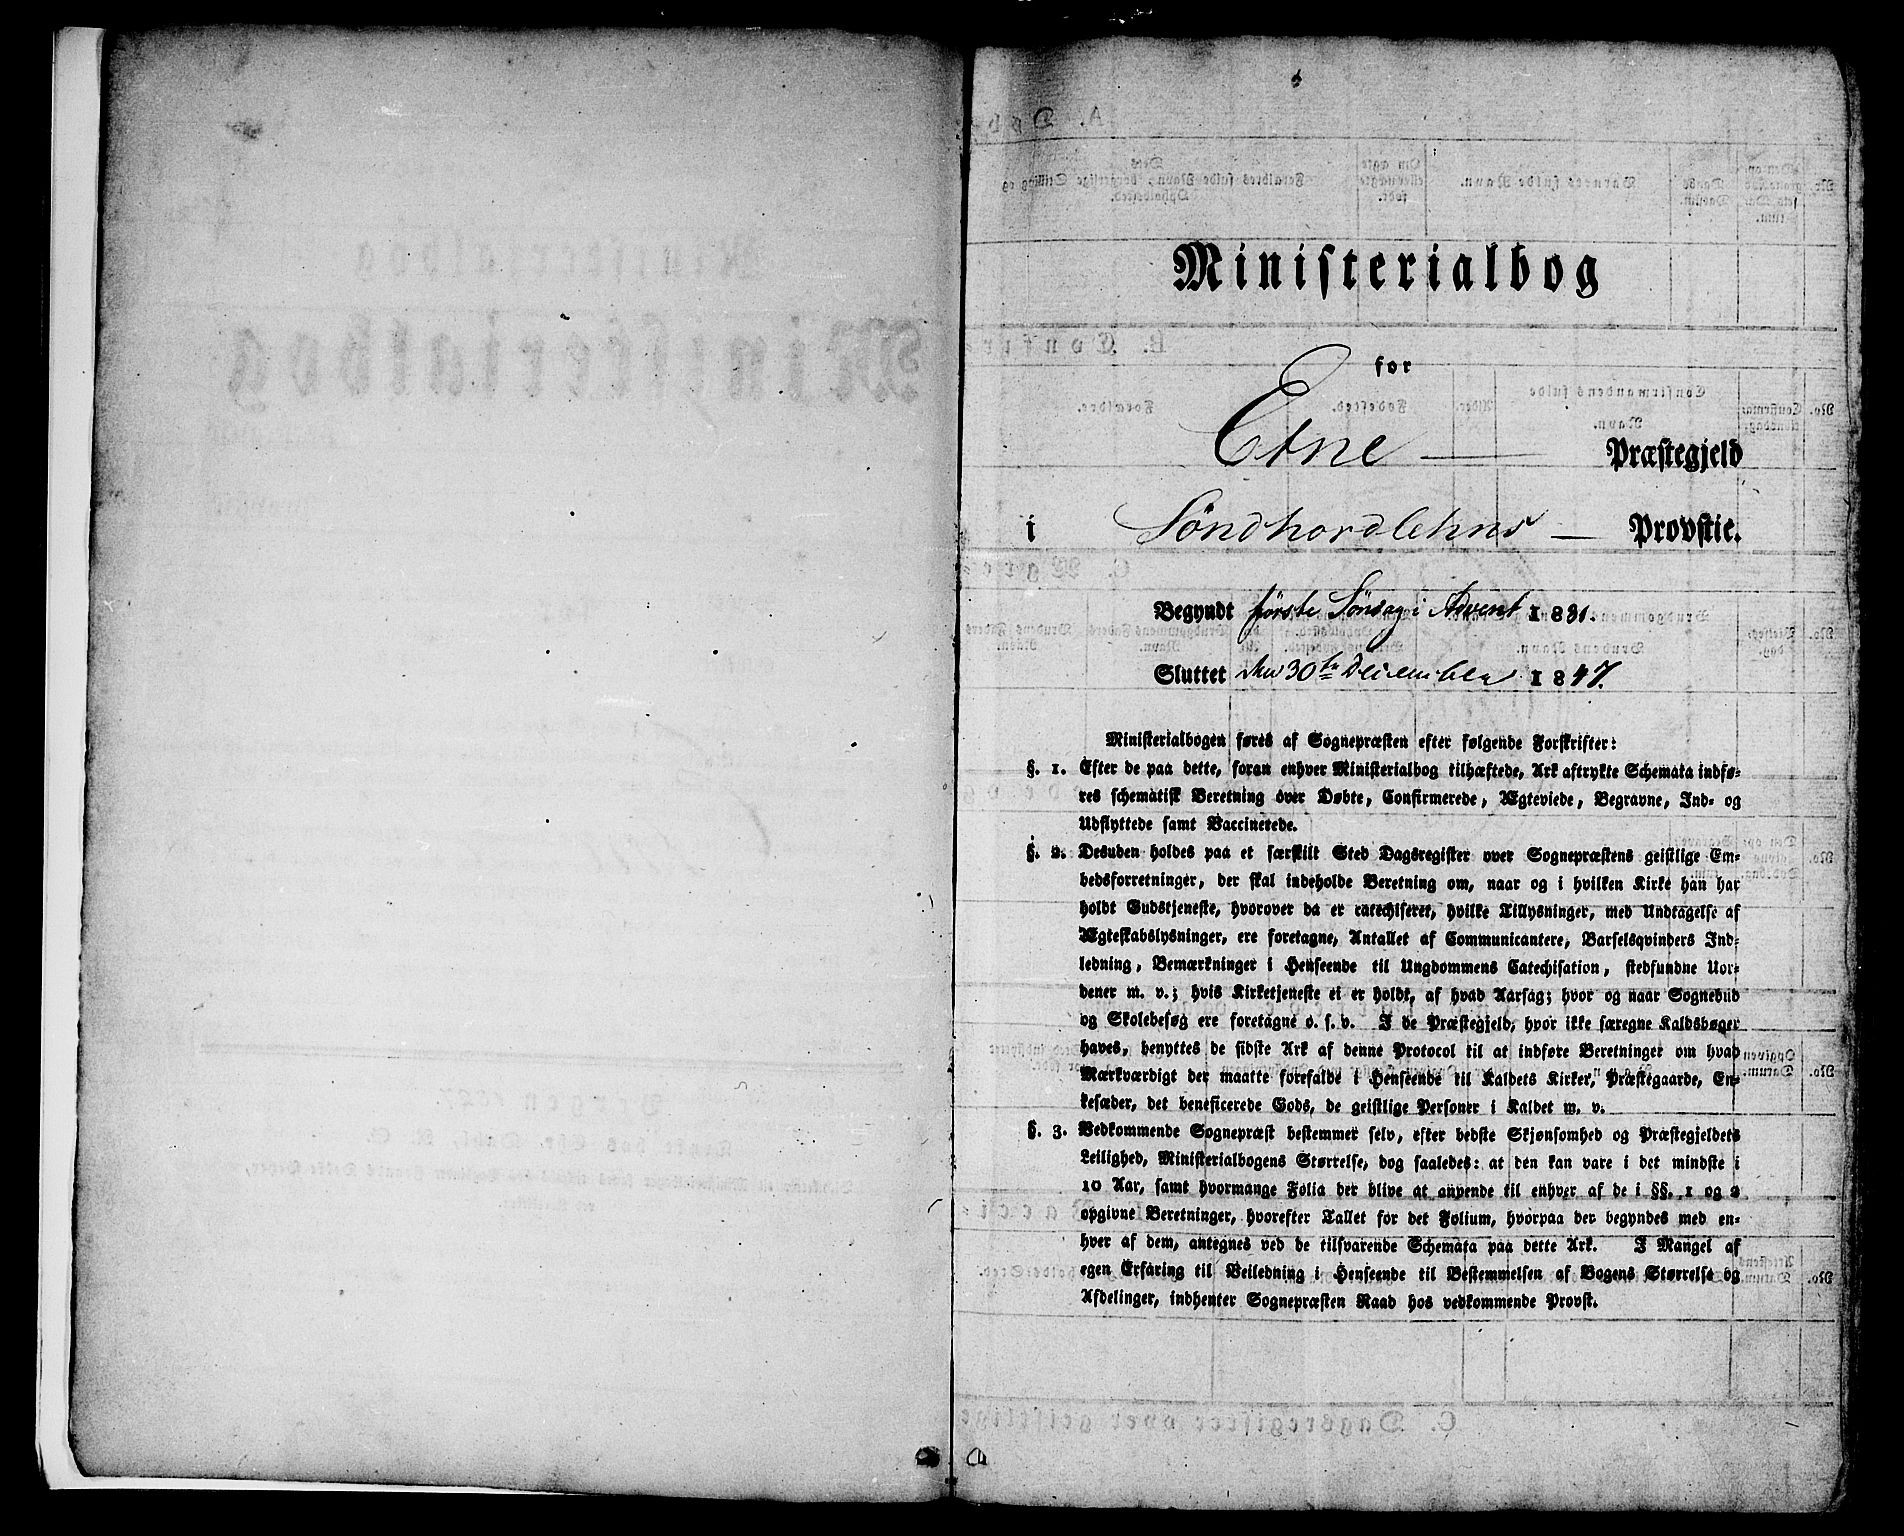 Ministerialbog
for
Etne — Præstegjeld
i Söndhordlehns — Provstie.
Begyndt förste Söndag i Advent 1831.
Sluttet den 30te December 1847.
Ministerialbogen føres af Sognepræsten efter følgende Forskrifter:
§. 1. Efter de paa dette, foran enhver Ministerialbog tilhæftede, Ark aftrykte Schemata indfø-
res schematisk Beretning over Døbte, Confirmerede, Ægteviede, Begravne, Ind- og
Udflyttede samt Vaccinerede.
§. 2. Desuden holdes paa et særskilt Sted Dagsregister over Sognepræstens geistlige Em-
bedsforretninger, der skal indeholde Beretning om, naar og i hvilken Kirke han har
holdt Gudstjeneste, hvorover da er catechiseret, hvilke Tillysninger, med Undtagelse af
Ægteskabslysninger, ere foretagne, Antallet af Communicantere, Barselsqvinders Ind-
ledning, Bemærkninger i Henseende til Ungdommens Catechisation, stedfundne Uor-
dener m. v.; hvis Kirketjeneste ei er holdt, af hvad Aarsag; hvor og naar Sognebud
og Skolebesøg ere foretagne o. s. v. I de Præstegjeld, hvor ikke særegne Kaldsbøger
haves, benyttes de sidste Ark af denne Protocol til at indføre Beretninger om hvad
Mærkværdigt der maatte forefalde i Henseende til Kaldets Kirker, Præstegaarde, En-
kesæder, det beneficerede Gods, de geistlige Personer i Kaldet m. v.
§. 3. Vedkommende Sognepræst bestemmer selv, efter bedste Skjønsomhed og Præstegjeldets
Leilighed, Ministerialbogens Størrelse, dog saaledes: at den kan vare i det mindste i
10 Aar, samt hvormange Folia der blive at anvende til enhver af de i §§. 1 og 2
opgivne Beretninger, hvorefter Tallet for det Folium, hvorpaa der begyndes med en-
hver af dem, antegnes ved de tilsvarende Schemata paa dette Ark. I Mangel af
egen Erfaring til Veiledning i Henseende til Bestemmelsen af Bogens Størrelse og
Afdelinger, indhenter Sognepræsten Raad hos vedkommende Provst.